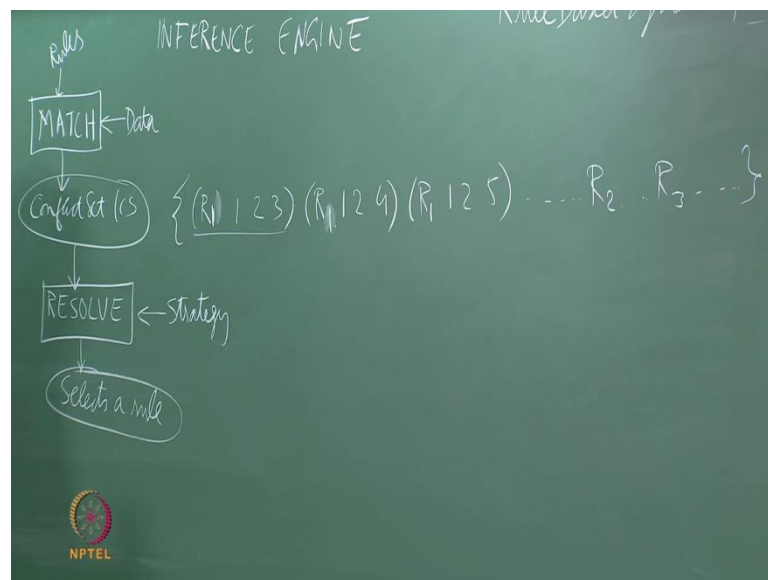 INFERENCE ENGINE
Rule Based
Rules
MATCH ← Data
Conflict Set CS
{(R1 1 2 3) (R1 1 2 4) (R1 1 2 5) ..... R2 .. R3 ...}
RESOLVE ← Strategy
Selects a rule
NPTEL